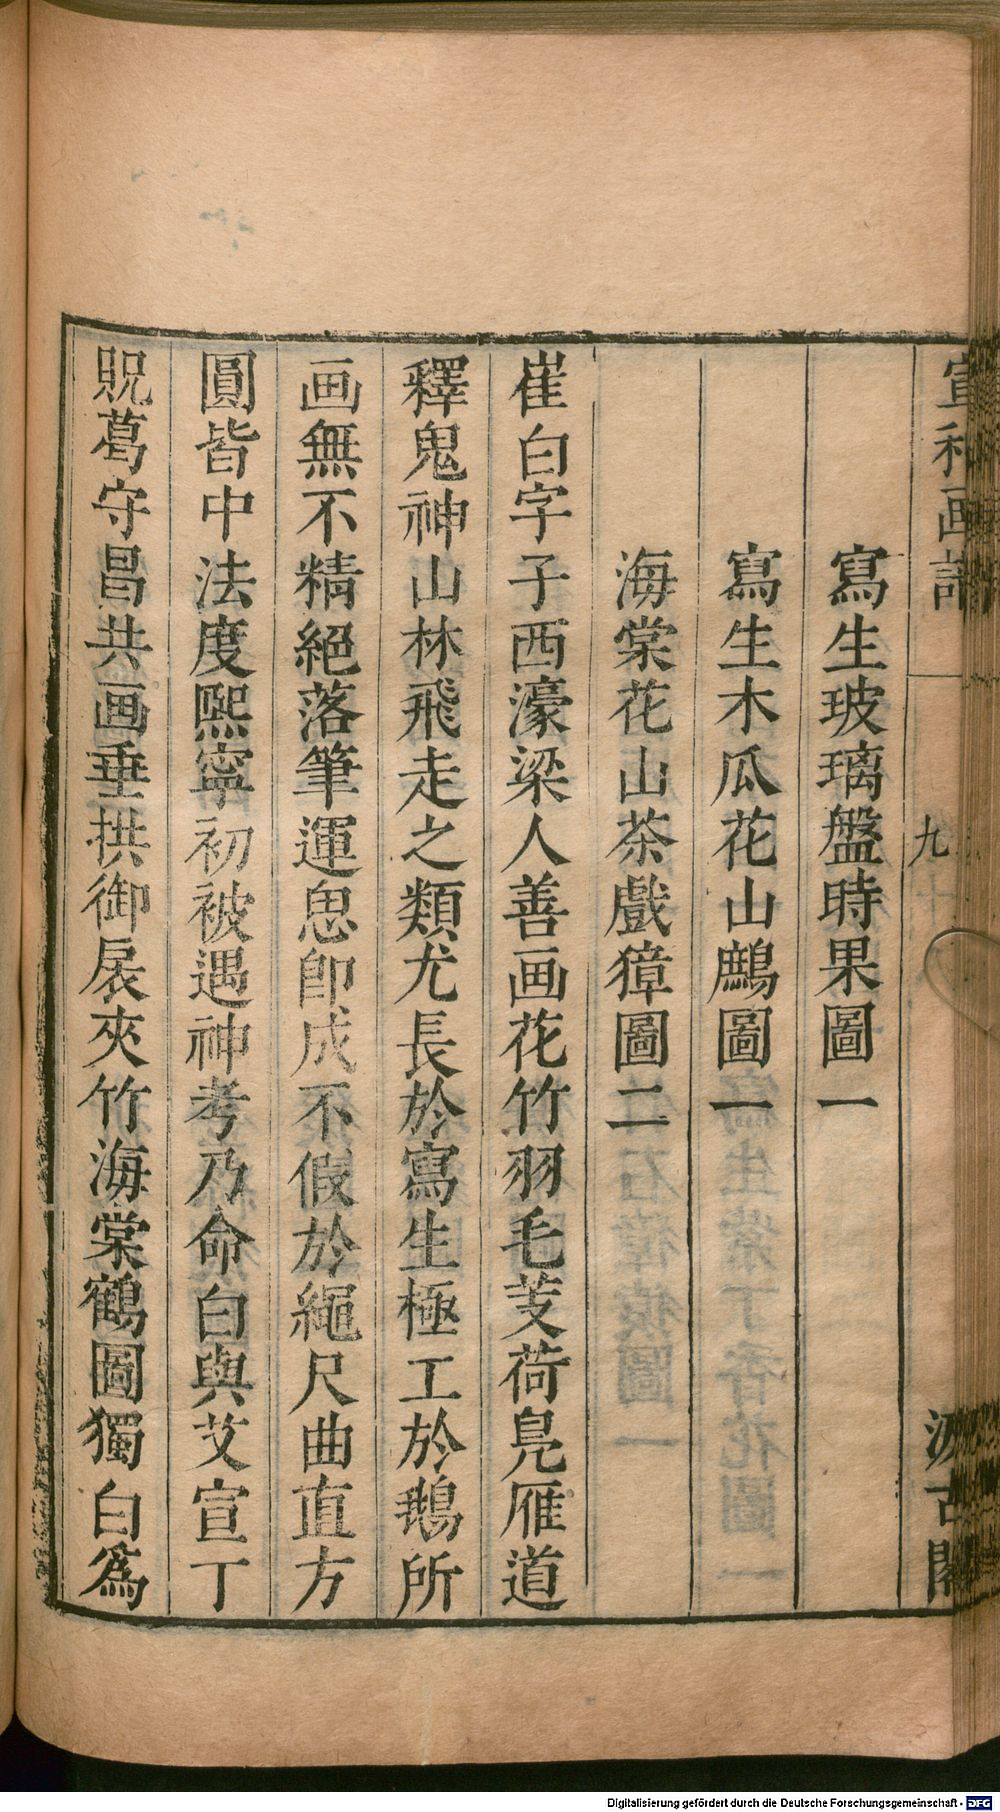 宣和画譜　九　汲古閣
寫生玻璃盤時果圖一
寫生木瓜花山鷓圖一
海棠花山茶戲獐圖二
崔白字子西濠梁人善画花竹羽毛芰荷鳧雁道
釋鬼神山林飛走之類尤長於寫生極工於鵝所
画無不精絕落筆運思即成不假於繩尺曲直方
圓皆中法度熙寧初被遇神考乃命白與艾宣丁
貺葛守昌共画垂拱御扆夾竹海棠鶴圖獨白爲
Digitalisierung gefördert durch die Deutsche Forschungsgemeinschaft - DFG